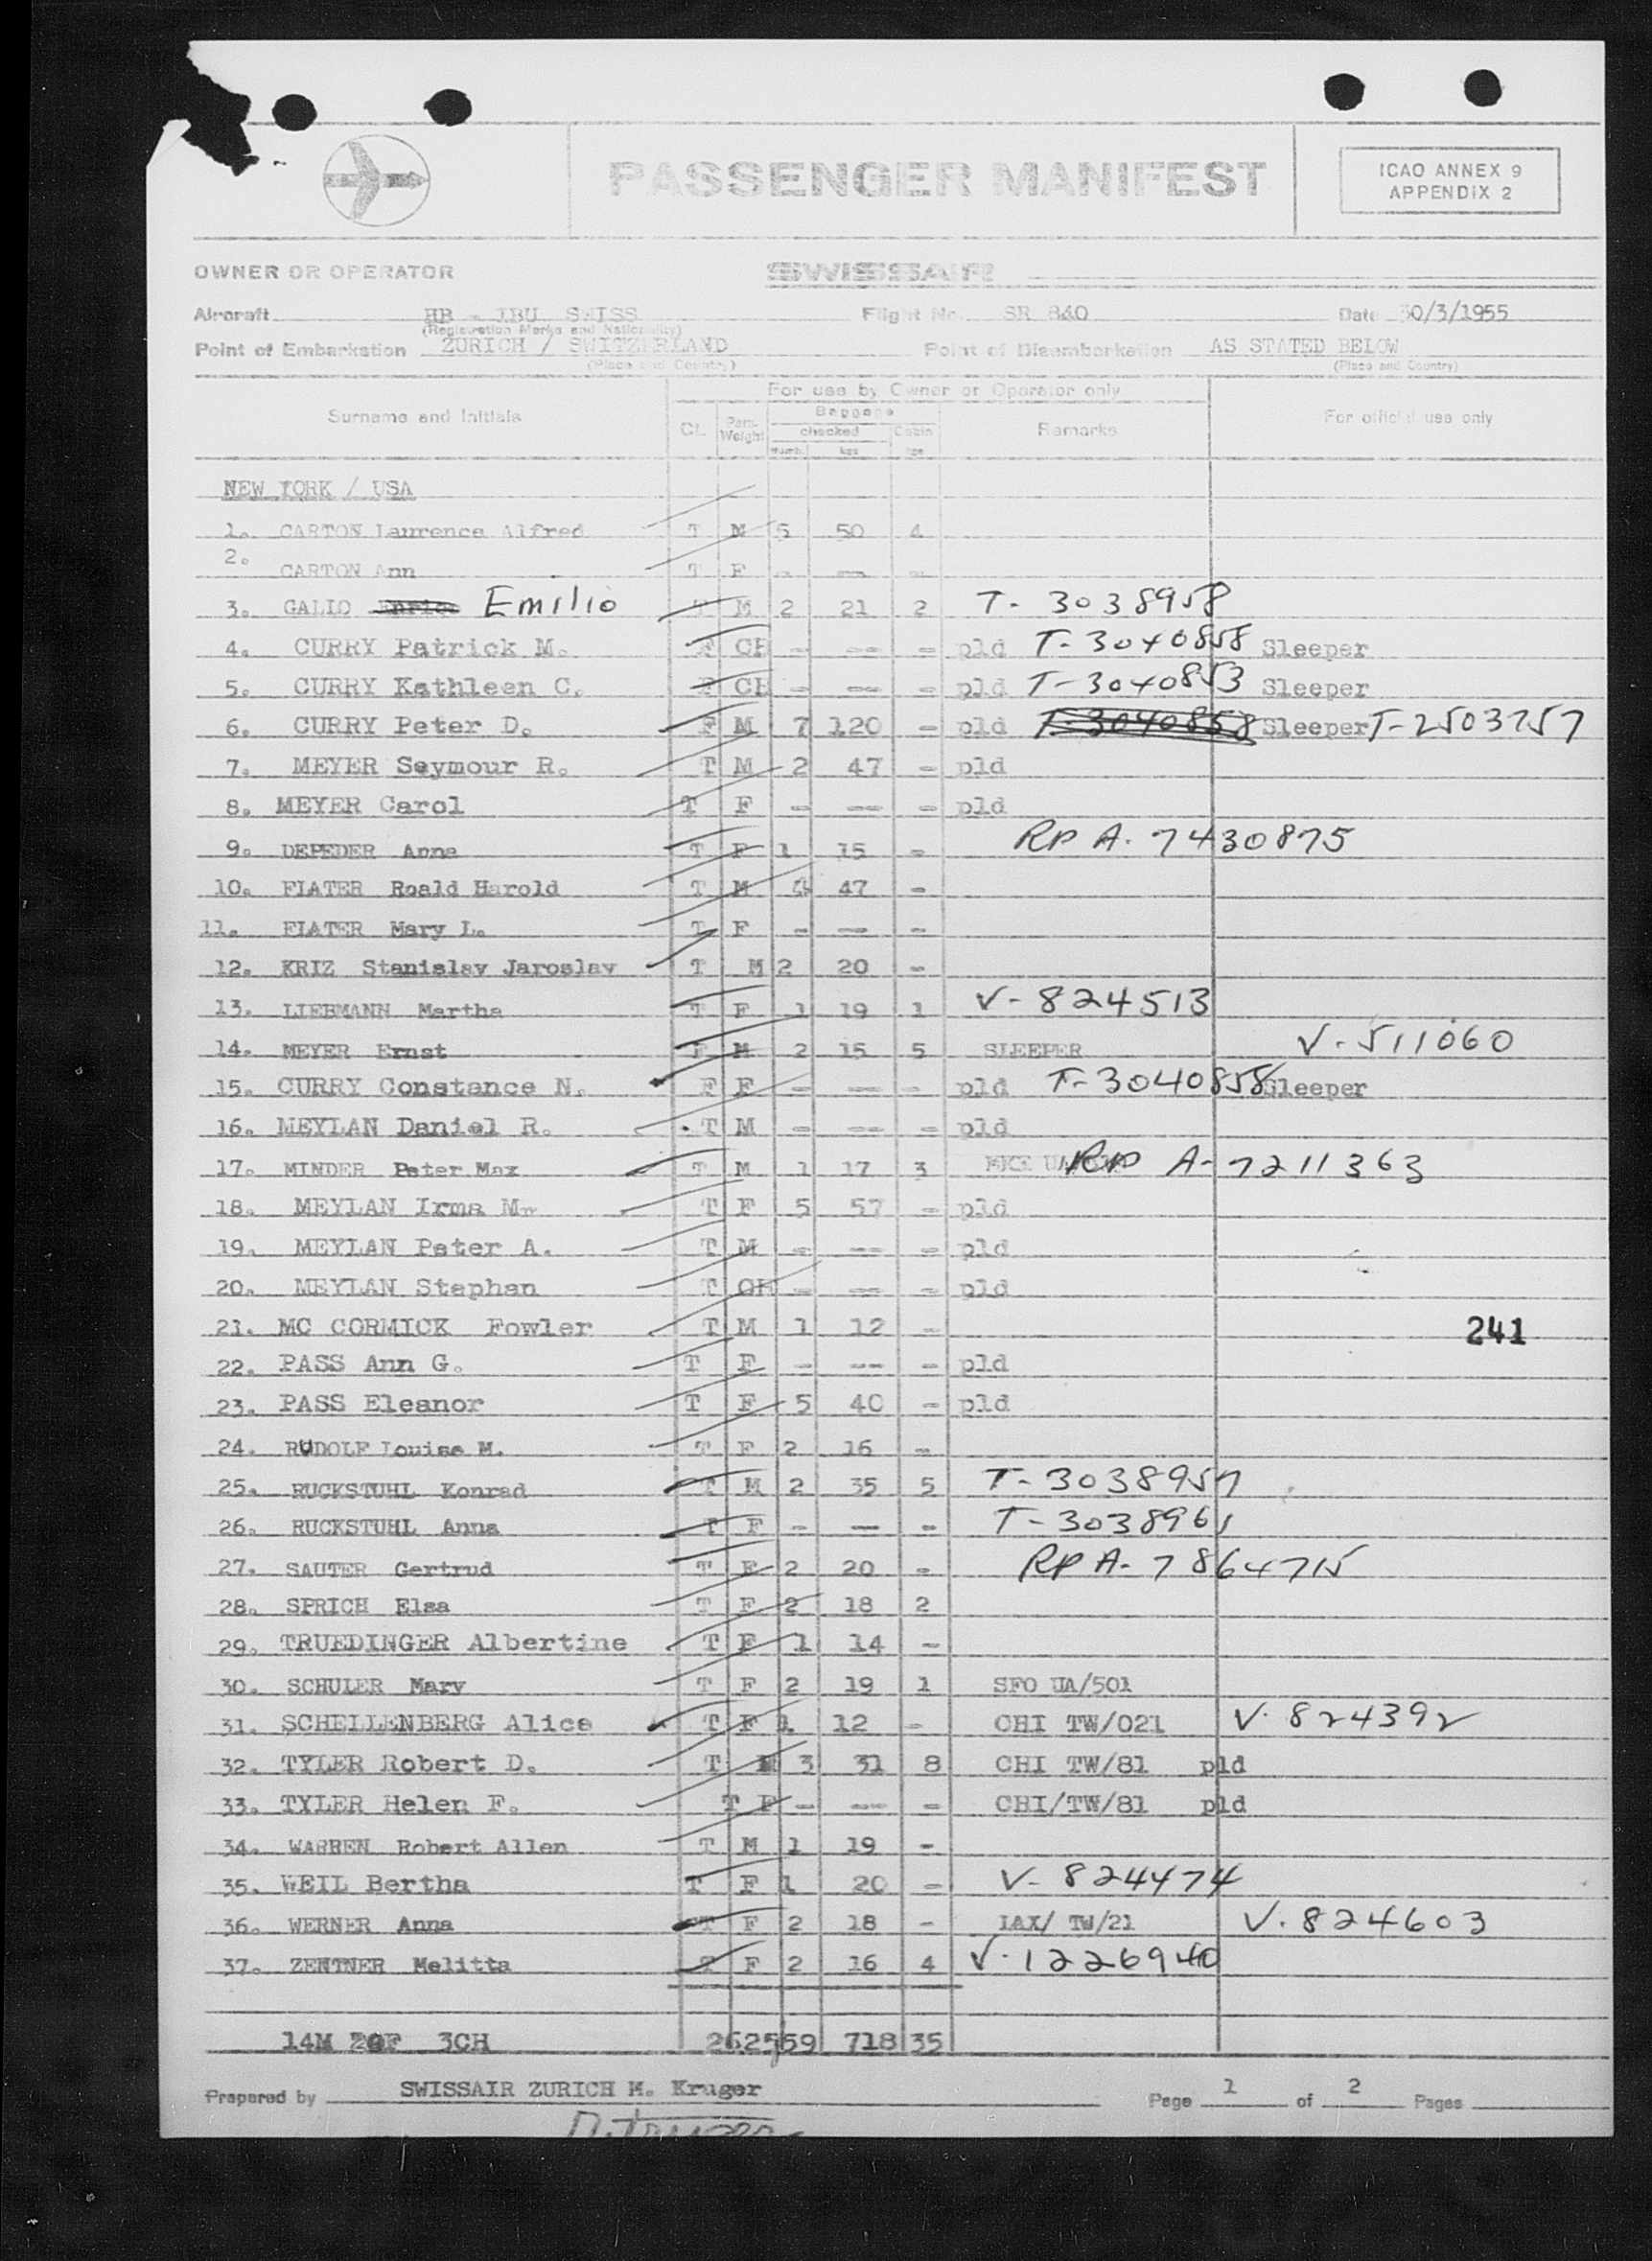 PASSENGER MANIFEST
ICAO ANNEX 9
APPENDIX 2
OWNER OR OPERATOR SWISSAIR
Aircraft HB - IBU SWISS Flight No. SR 840 Date 30/3/1955
(Registration Marks and Nationality)
Point of Embarkation ZURICH / SWITZERLAND Point of Disembarkation AS STATED BELOW
(Place and Country) (Place and Country)
For use by Owner or Operator only
Surname and Initials Cl. Pers. Weight Baggage checked Numb. kgs Cabin kgs Remarks For official use only
NEW YORK / USA
1. CARTON Laurence Alfred T M 5 50 4
2. CARTON Ann T F - -- -
3. GALLO Emilio T M 2 21 2 T- 3038958
4. CURRY Patrick M. F CH - -- - pld T- 3040858 Sleeper
5. CURRY Kathleen C. F CH - -- - pld T-3040853 Sleeper
6. CURRY Peter D. F M 7 120 - pld T-3040858 Sleeper T-2503757
7. MEYER Seymour R. T M 2 47 - pld
8. MEYER Carol T F - -- - pld
9. DEPEDER Anna T F 1 15 - RP A- 7430875
10. FLATER Roald Harold T M 4 47 -
11. FLATER Mary L. T F - -- -
12. KRIZ Stanislav Jaroslav T M 2 20 -
13. LIEBMANN Martha T F 1 19 1 V- 824513
14. MEYER Ernst F M 2 15 5 SLEEPER V- 511060
15. CURRY Constance N. F F - -- - pld T-3040858 Sleeper
16. MEYLAN Daniel R. T M - -- - pld
17. MINDER Peter Max T M 1 17 3 MKE RP A- 7211363
18. MEYLAN Irma M. T F 5 57 - pld
19. MEYLAN Peter A. T M - -- - pld
20. MEYLAN Stephan T CH - -- - pld
21. MC CORMICK Fowler T M 1 12 - 241
22. PASS Ann G. T F - -- - pld
23. PASS Eleanor T F 5 40 - pld
24. RUDOLF Louise M. T F 2 16 -
25. RUCKSTUHL Konrad T M 2 35 5 T-3038957
26. RUCKSTUHL Anna T F - -- - T-3038961
27. SAUTER Gertrud T F 2 20 - RP A-7864715
28. SPRICH Elsa T F 2 18 2
29. TRUEDINGER Albertine T F 1 14 -
30. SCHULER Mary T F 2 19 1 SFO UA/501
31. SCHELLENBERG Alice T F 1 12 - CHI TW/021 V- 824392
32. TYLER Robert D. T M 3 31 8 CHI TW/81 pld
33. TYLER Helen F. T F - -- - CHI/TW/81 pld
34. WARREN Robert Allen T M 1 19 -
35. WEIL Bertha T F 1 20 - V- 824474
36. WERNER Anna T F 2 18 - LAX/ TW/21 V-824603
37. ZENTNER Melitta T F 2 16 4 V-1226940
14M 20F 3CH 2625 59 718 35
Prepared by SWISSAIR ZURICH M. Kruger Page 1 of 2 Pages